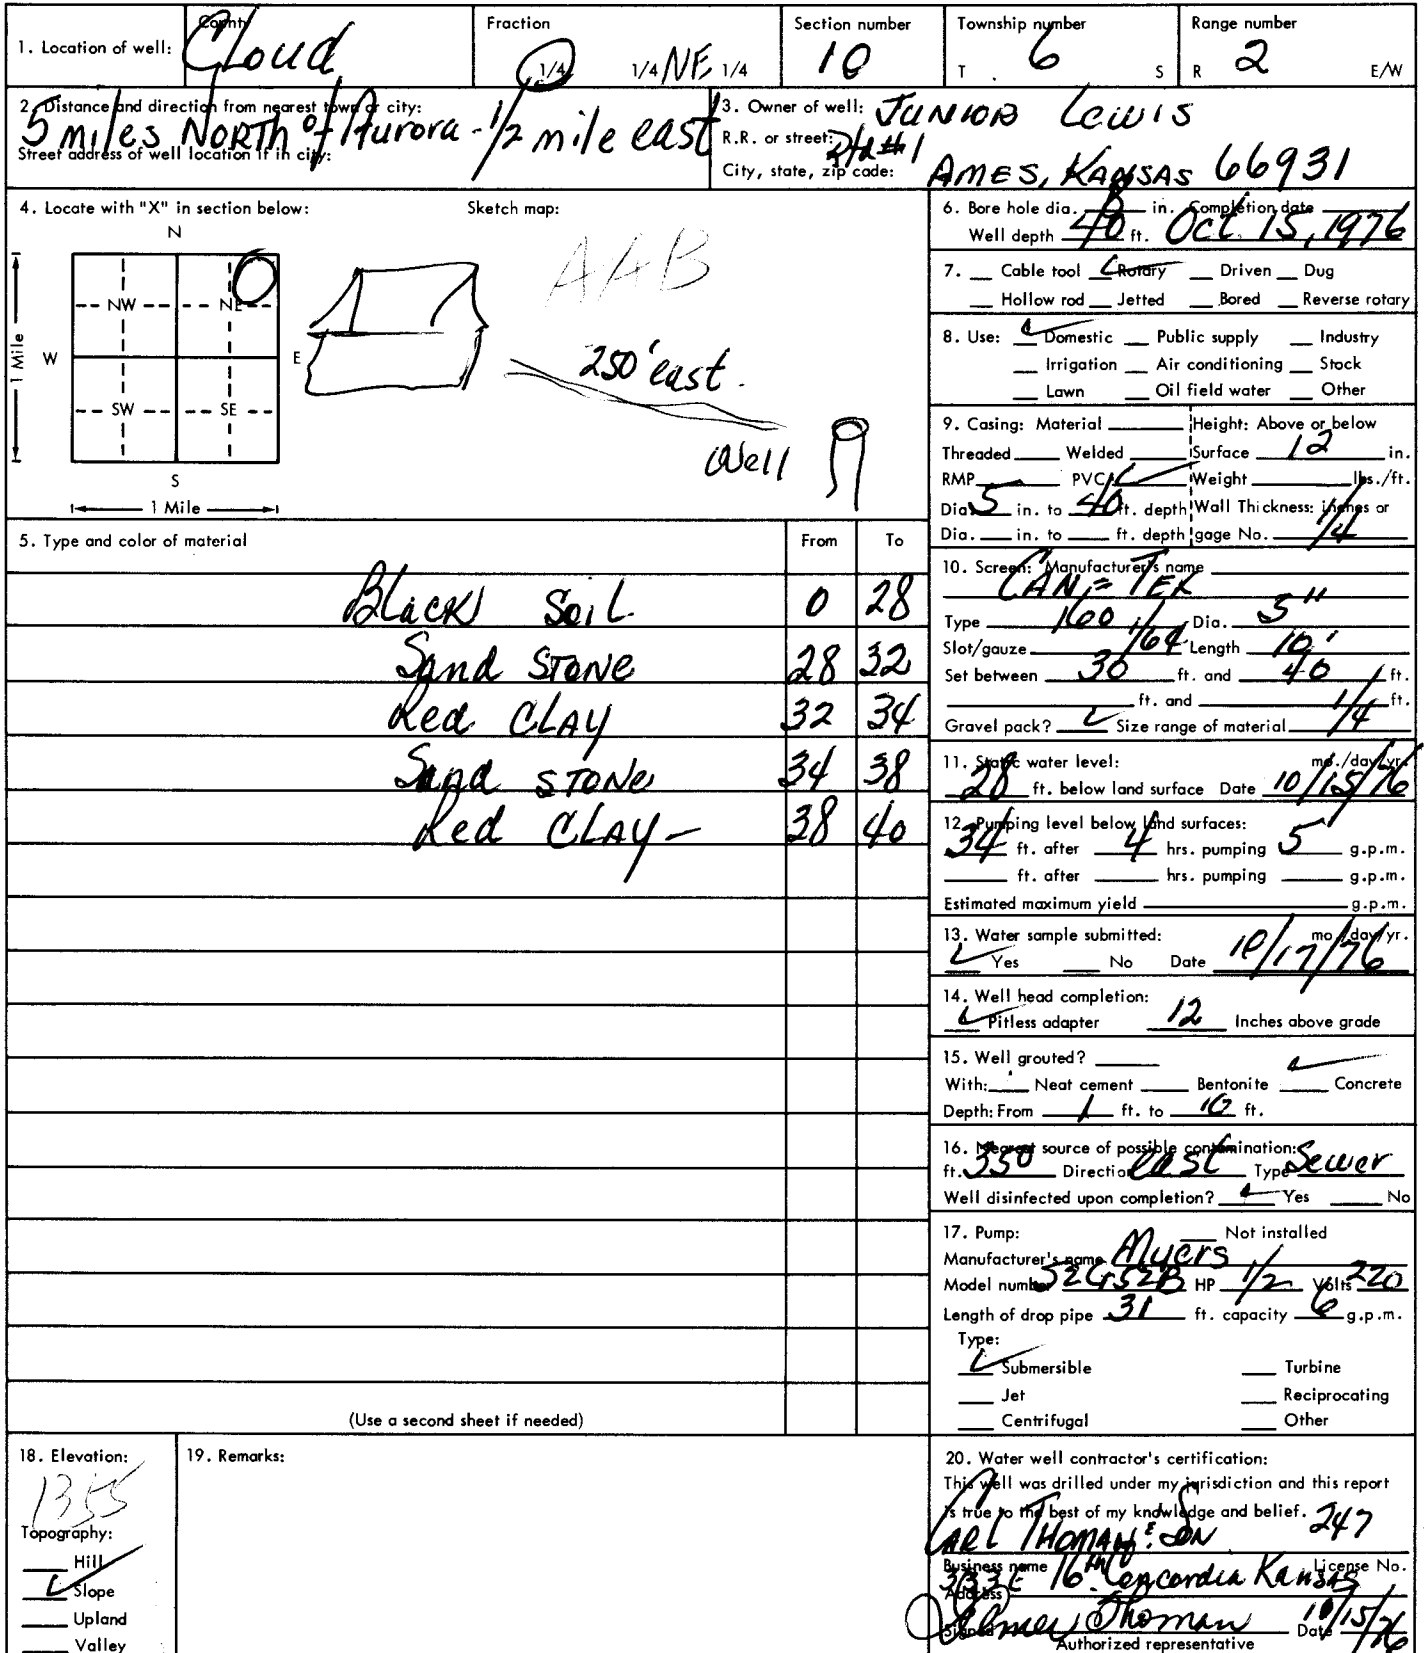 1. Location of well: County Cloud Fraction 1/4 1/4 NE 1/4 Section number 10 Township number T. 6 S Range number R 2 E/W
2. Distance and direction from nearest town or city:
5 miles NORTH of Aurora - 1/2 mile east
Street address of well location if in city:
3. Owner of well: JUNIOR LEWIS
R.R. or street: #1
City, state, zip code: AMES, KANSAS 66931
4. Locate with "X" in section below: Sketch map:
N
NW NE
W E
SW SE
S
1 Mile
1 Mile
AAB
250' east.
Well
5. Type and color of material From To
Black Soil 0 28
Sand STONE 28 32
Red CLAY 32 34
Sand STONE 34 38
Red CLAY - 38 40
(Use a second sheet if needed)
6. Bore hole dia. 8 in. Completion date
Well depth 40 ft. Oct. 15, 1976
7. Cable tool Rotary Driven Dug
Hollow rod Jetted Bored Reverse rotary
8. Use: Domestic Public supply Industry
Irrigation Air conditioning Stock
Lawn Oil field water Other
9. Casing: Material Height: Above or below
Threaded Welded Surface 12 in.
RMP PVC Weight lbs./ft.
Dia. 5 in. to 40 ft. depth Wall Thickness: inches or
Dia. in. to ft. depth gage No. 1/4
10. Screen: Manufacturer's name
CAN-TEX
Type 160 Dia. 5"
Slot/gauze 1/64 Length 10'
Set between 30 ft. and 40 ft.
ft. and ft.
Gravel pack? Size range of material 1/4
11. Static water level: mo./day/yr.
28 ft. below land surface Date 10/15/76
12. Pumping level below land surfaces:
34 ft. after 4 hrs. pumping 5 g.p.m.
ft. after hrs. pumping g.p.m.
Estimated maximum yield g.p.m.
13. Water sample submitted: mo./day/yr.
Yes No Date 10/17/76
14. Well head completion:
Pitless adapter 12 Inches above grade
15. Well grouted?
With: Neat cement Bentonite Concrete
Depth: From 1 ft. to 10 ft.
16. Nearest source of possible contamination:
ft. 350 Direction east Type Sewer
Well disinfected upon completion? Yes No
17. Pump: Not installed
Manufacturer's name Myers
Model number 52GS2B HP 1/2 Volts 220
Length of drop pipe 31 ft. capacity 6 g.p.m.
Type:
Submersible Turbine
Jet Reciprocating
Centrifugal Other
18. Elevation:
1355
Topography:
Hill
Slope
Upland
Valley
19. Remarks:
20. Water well contractor's certification:
This well was drilled under my jurisdiction and this report
is true to the best of my knowledge and belief. 247
CARL THOMAN & SON
Business name License No.
16th Concordia Kansas
Address
Elmer Thoman 10/15/76
Signed Date
Authorized representative